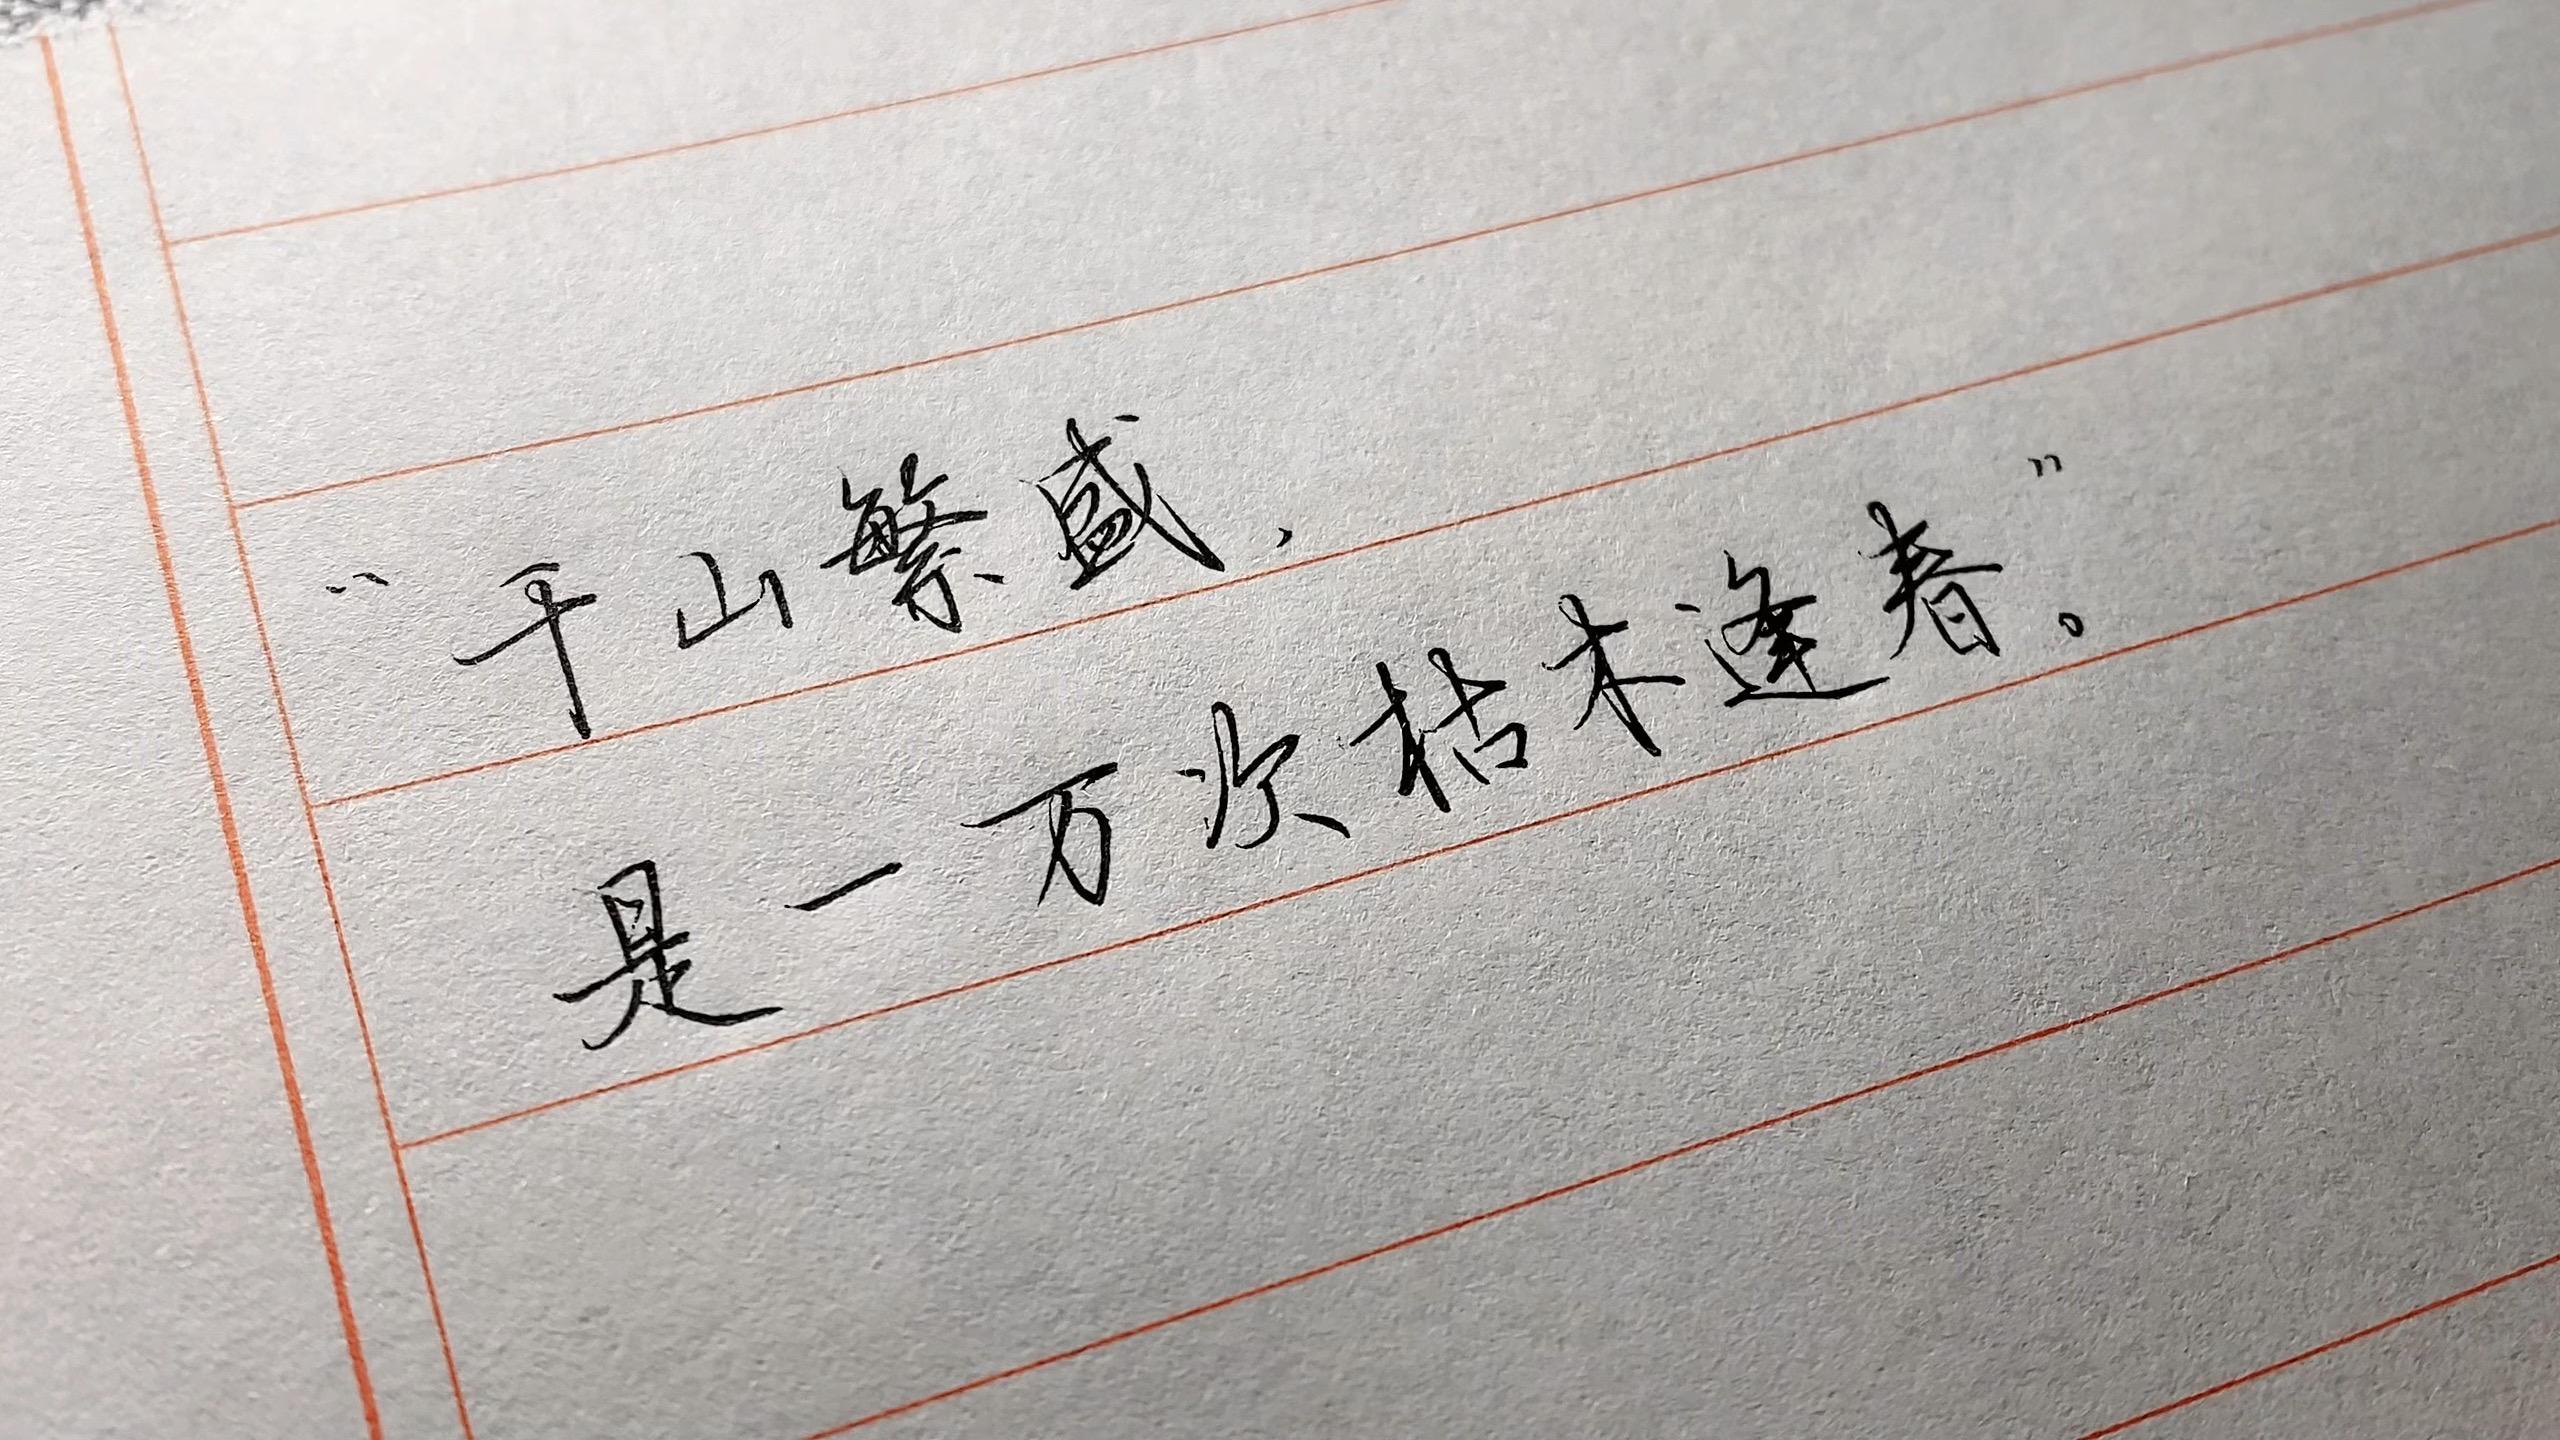 “千山繁盛，
是一万次枯木逢春。”